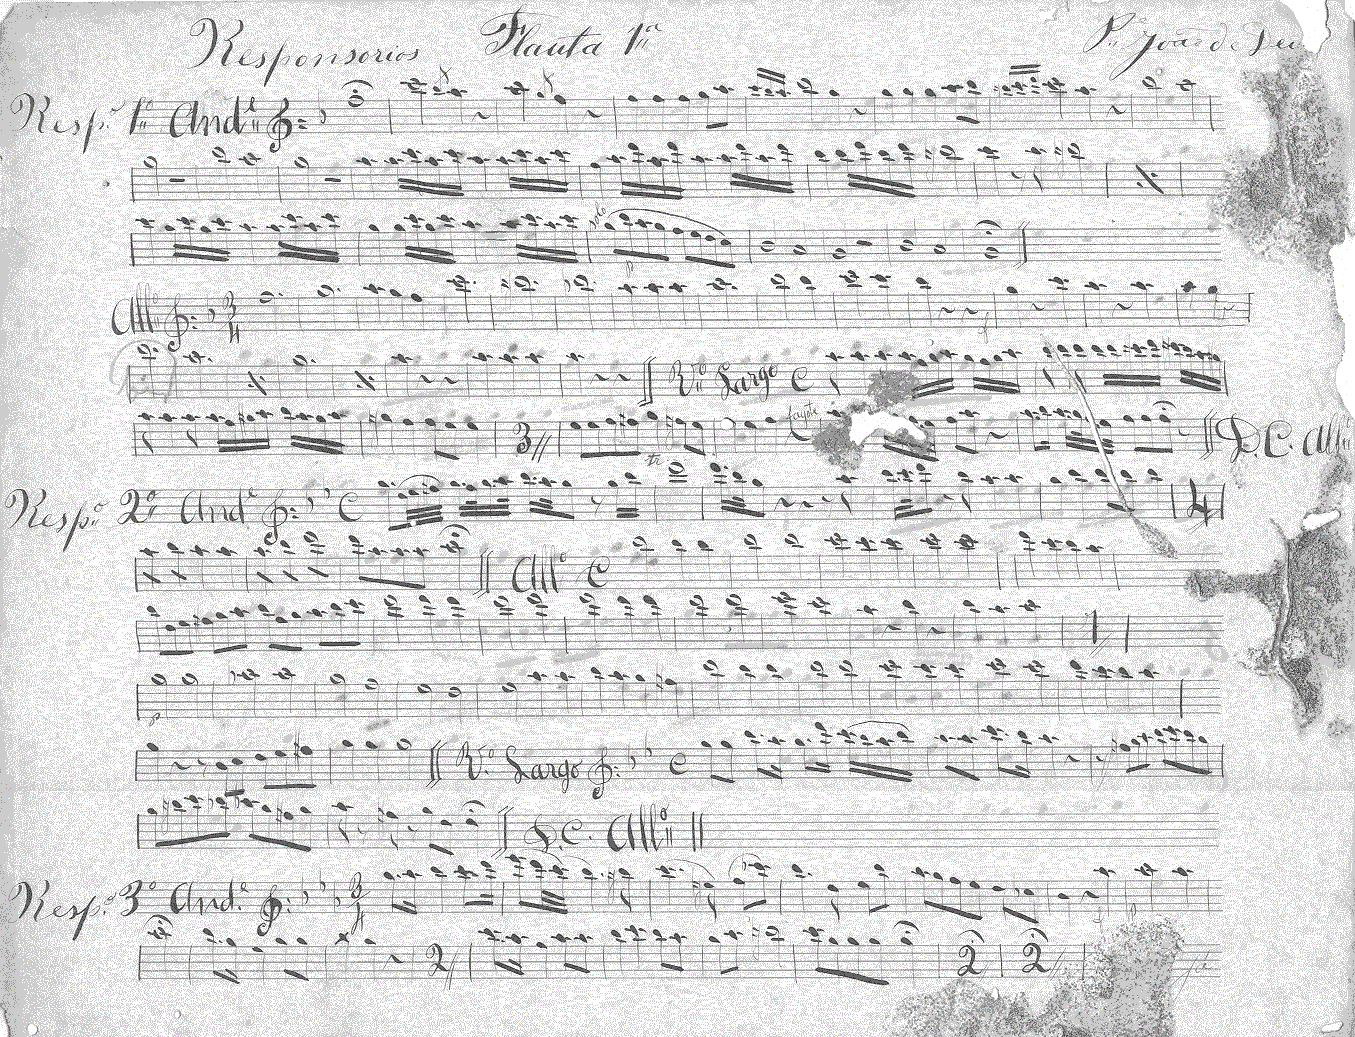 Responsorios Flauta 1ª Pe. João de Deus
Resp. 1º Andᵉ
solo
p
Allº 3/4
Rº Largo C
3 fagote D.C. Allº
tr
Resp. 2º Andᵉ C 4
Allº C
p
Rº Largo C
D.C. Allº
Resp. 3º Andᵉ 3/4
p
2 2 2